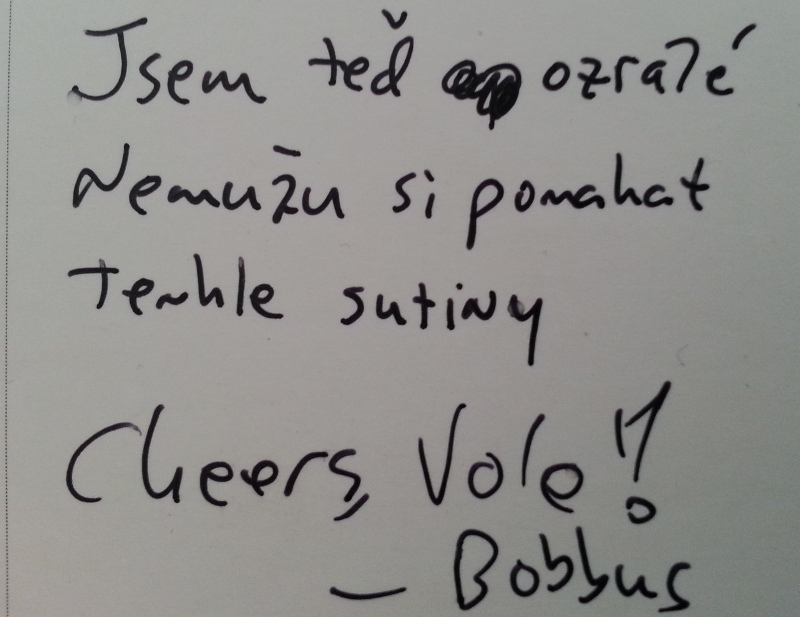 Jsem teď ozralé
Nemužu si pomahat
Tenhle sutiny
Cheers, Vole!!
— Bobbus